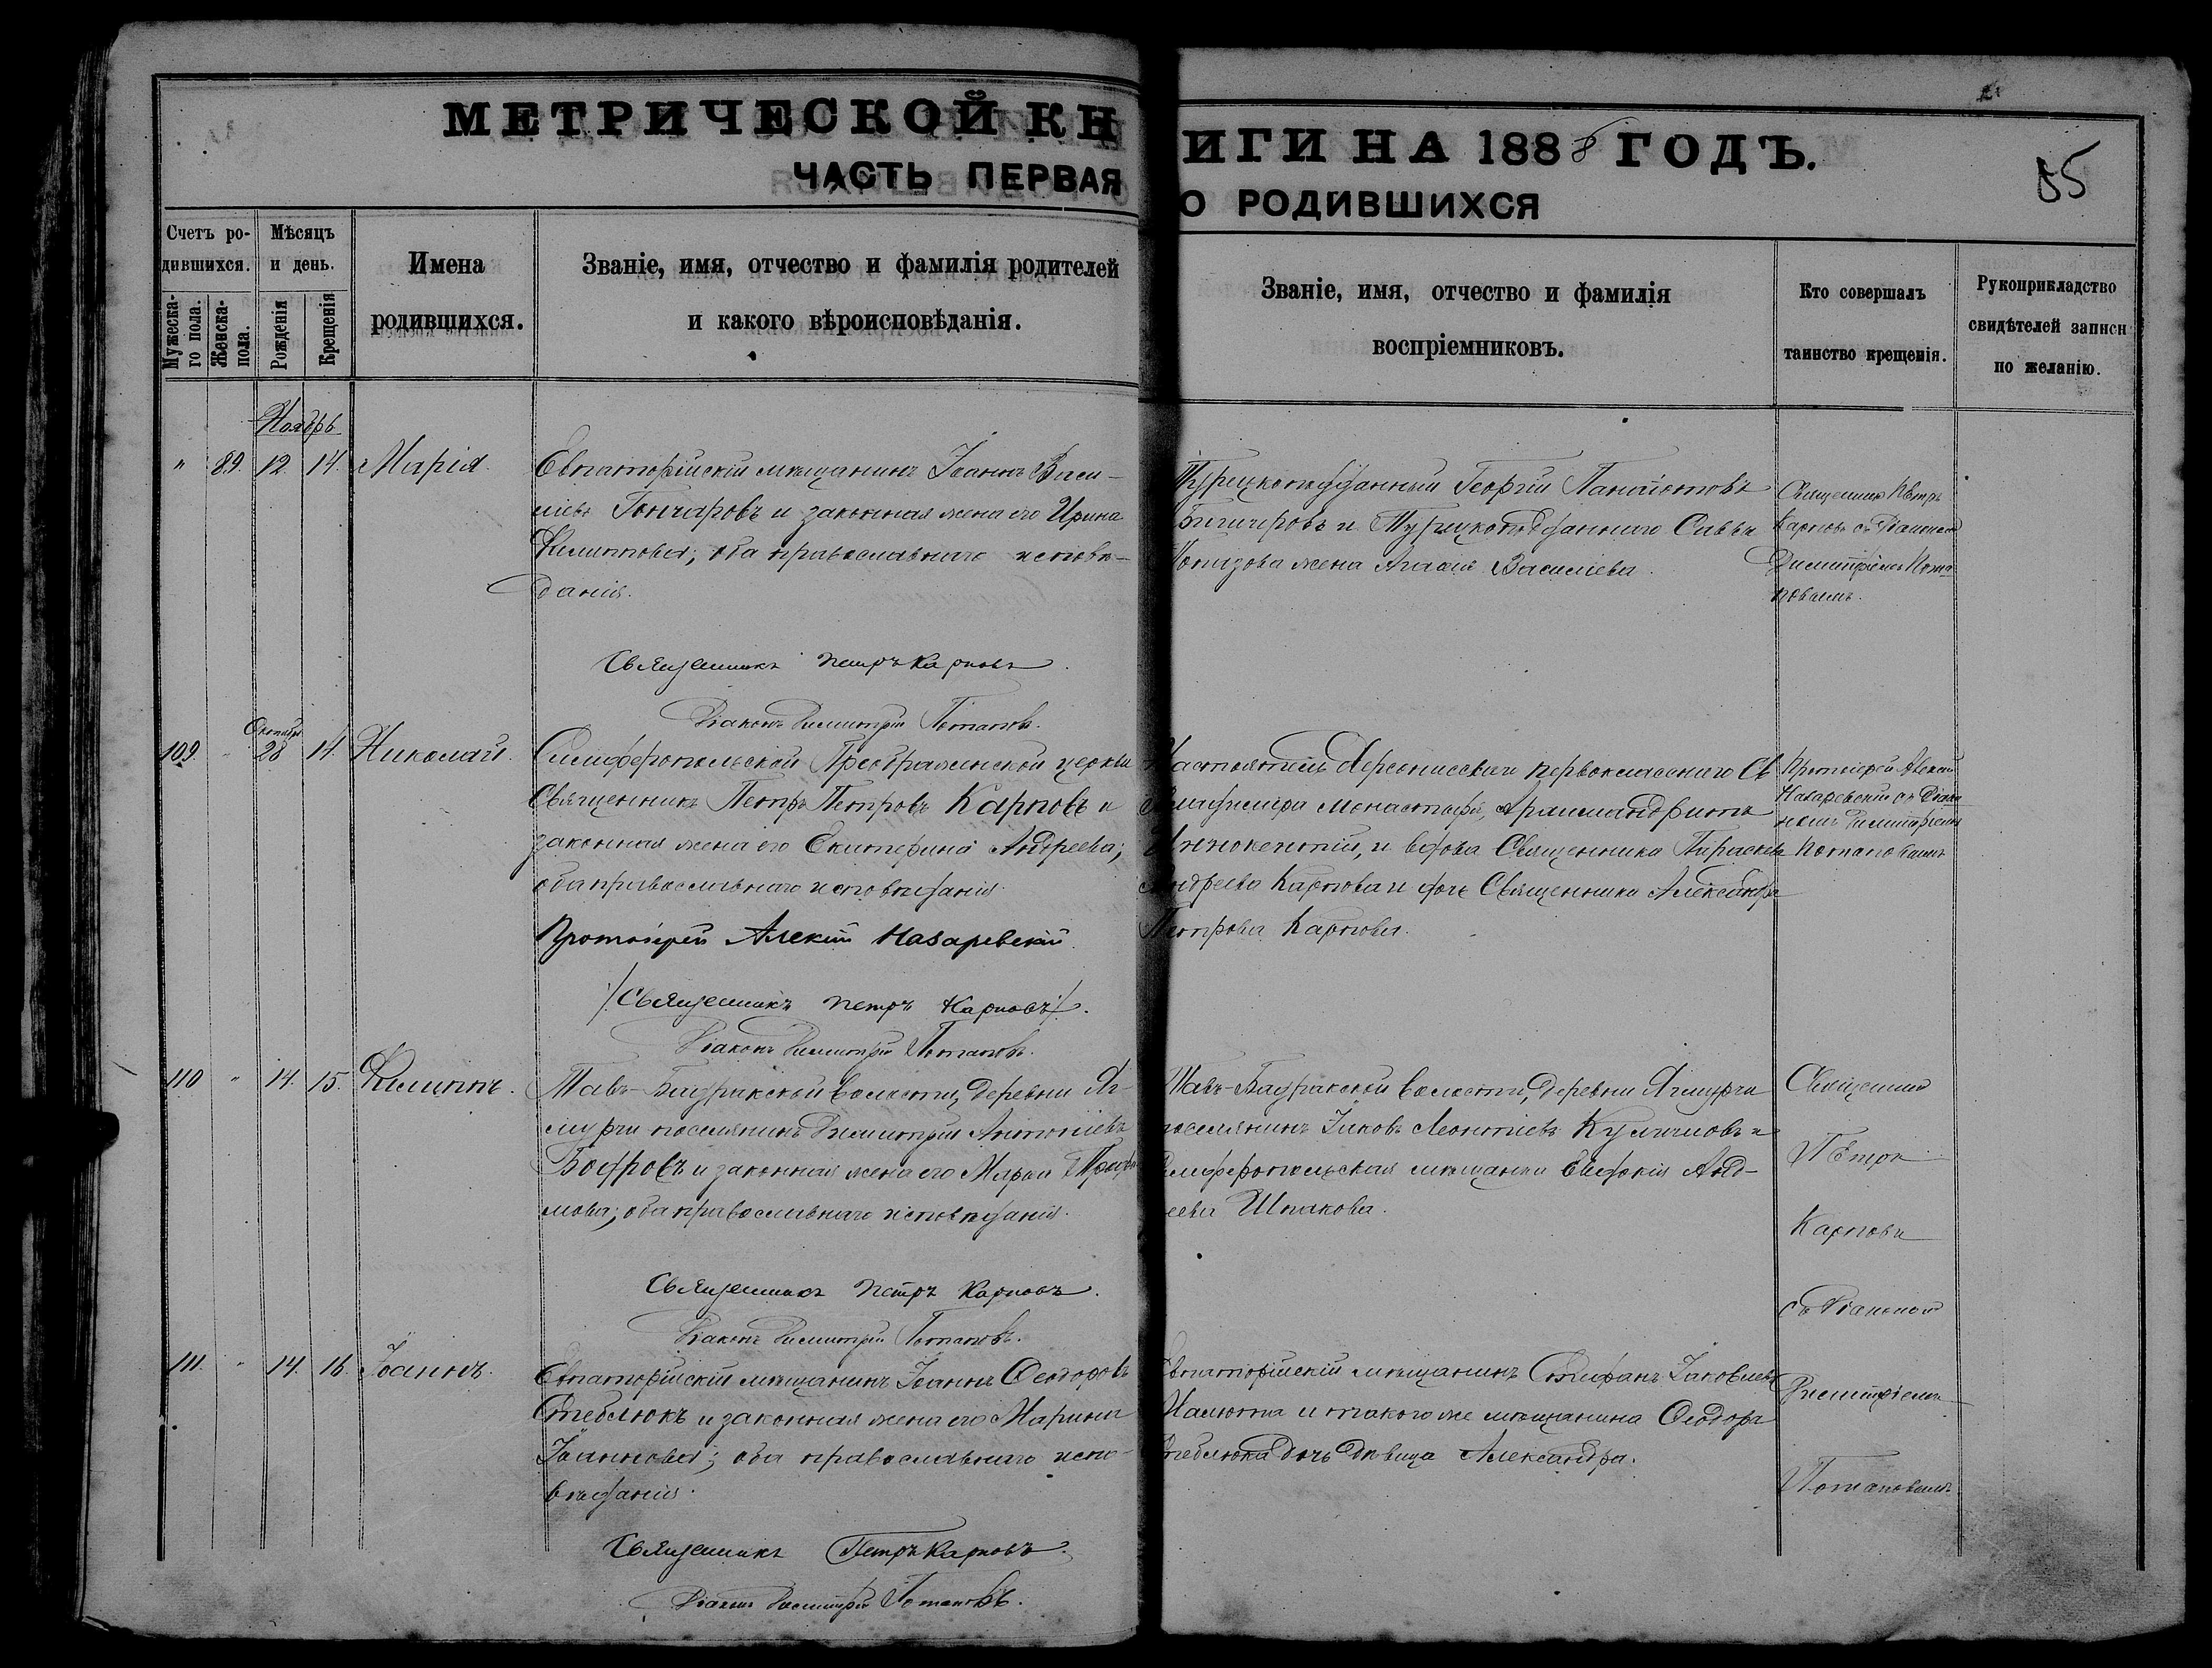 МЕТРИЧЕСКОЙ КНИГИ НА 1888 ГОДЪ.
ЧАСТЬ ПЕРВАЯ О РОДИВШИХСЯ
85
Счетъ родившихся.
Мужеска-го пола.
Женска-пола.
Мѣсяцъ и день.
Рожденія
Крещенія
Имена родившихся.
Званіе, имя, отчество и фамилія родителей
и какого вѣроисповѣданія.
Званіе, имя, отчество и фамилія
воспріемниковъ.
Кто совершалъ
таинство крещенія.
Рукоприкладство
свидѣтелей записи
по желанію.
Ноябрь
" 89. 12. 14. Марія.
Евпаторійскій мѣщанинъ Іоаннъ Васи-
ліевъ Гончаровъ и законная жена его Ирина
Филиппова; оба православнаго исповѣ-
данія.
Турецкоподданный Георгій Панаіотовъ
и Турецкоподданнаго Саввы
жена Василіева.
Священникъ Петръ
Карповъ съ Діакономъ
Димитріемъ Пота-
повымъ.
Священникъ Петръ Карповъ.
Діаконъ Димитрій Потаповъ.
Октября
109. " 28 14. Николай.
Симферопольской Преображенской церкви
Священникъ Петръ Петровъ Карповъ и
законная жена его Екатерина Андреева;
оба православнаго исповѣданія.
Настоятель Херсонисскаго первокласснаго Св.
Владиміра монастыря, Архимандритъ
Иннокентій, и вдова Священника Параскева
Андреева Карпова и дочь Священника Александра
Петрова Карпова.
Протоіерей Алексій
Назаревскій съ Діако-
номъ Димитріемъ
Потаповымъ
Протоіерей Алексій Назаревскій.
/Священникъ Петръ Карповъ/.
Діаконъ Димитрій Потаповъ.
110 " 14. 15. Филиппъ.
Тавъ-Бадракской волости, деревни Яг-
мурчи поселянинъ Димитрій Антоніевъ
Бодровъ и законная жена его Марѳа
оба православнаго исповѣданія.
Тавъ-Бадракской волости, деревни Ягмурчи
поселянинъ Іаковъ Леонтіевъ и
Симферопольская мѣщанка Евдокія Анд-
реева Шпакова.
Священникъ
Петръ
Карповъ
съ Діакономъ
Димитріемъ
Потаповымъ.
Священникъ Петръ Карповъ.
Діаконъ Димитрій Потаповъ.
111. " 14. 16. Іоаннъ.
Евпаторійскій мѣщанинъ Іоаннъ Ѳеодоровъ
Стеблюкъ и законная жена его Марина
Іоаннова; оба православнаго испо-
вѣданія.
Евпаторійскій мѣщанинъ Стефанъ Іаковлевъ
Налюта и такого же мѣщанина Ѳеодора
Стеблюка дочь дѣвица Александра.
Священникъ Петръ Карповъ.
Діаконъ Димитрій Потаповъ.